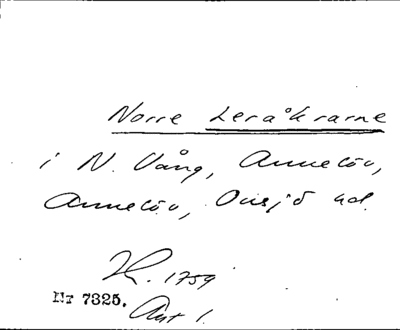 Norre Leråkrarne
i N. Vång, Annelöv,
Annelöv, Onsjö hd.
H. 1759
Nr 7325.
Akt 1.